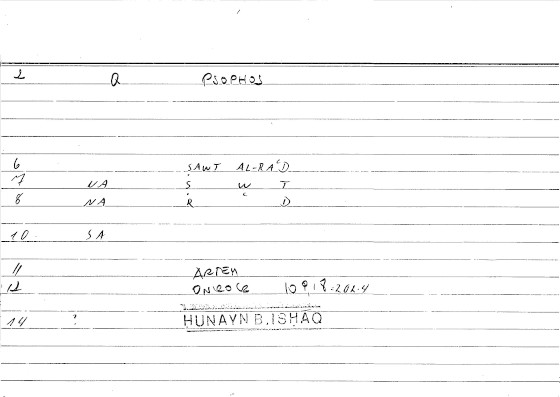 2 Q PSOPHOS
6 ṢAWT AL-RAʿD
7 VA Ṣ W T
8 NA R ʿ D
10 SA
11 ARTEM
12 ONIROCR 109,18-202.4
14 ? HUNAYN B. ISḤĀQ